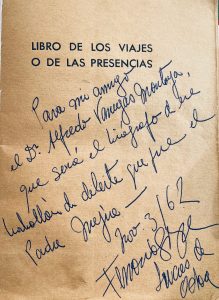 LIBRO DE LOS VIAJES
O DE LAS PRESENCIAS
Para mi amigo
el Dr. Alfredo Vanegas Montoya,
que será el biógrafo de ese
de deleite que fue el
Padre Mejía—
Nov. 3/62